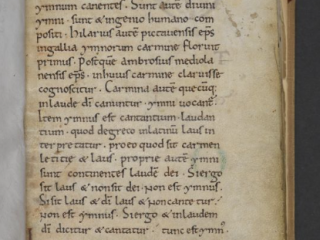 ymnum canentes. Sunt autē diuini
ymni. sunt & ingenio humano com
positi. hilarius autē pictauensis ep̄s
ingallia ymnorum carmine floruit
primus. Postquē ambrosius mediola
nensis ep̄s. inhuius carmine claruisse
cognoscitur. Carmina autē quecūq;
inlaude dī canuntur. ymni uocant̄.
Item ymnus est cantantium laudan
tium. quod degreco inlatinū laus in
ter pretatur. pro eo quod sit carmen
leticie & laus. proprie autē ymni
sunt continentes laudē dei. Si ergo
sit laus & non sit dei. non est ymnus.
Si sit laus & dī laus & non cantetur.
non est ymnus. Si ergo & inlaudem
dī dicitur & cantatur. tunc est ymn